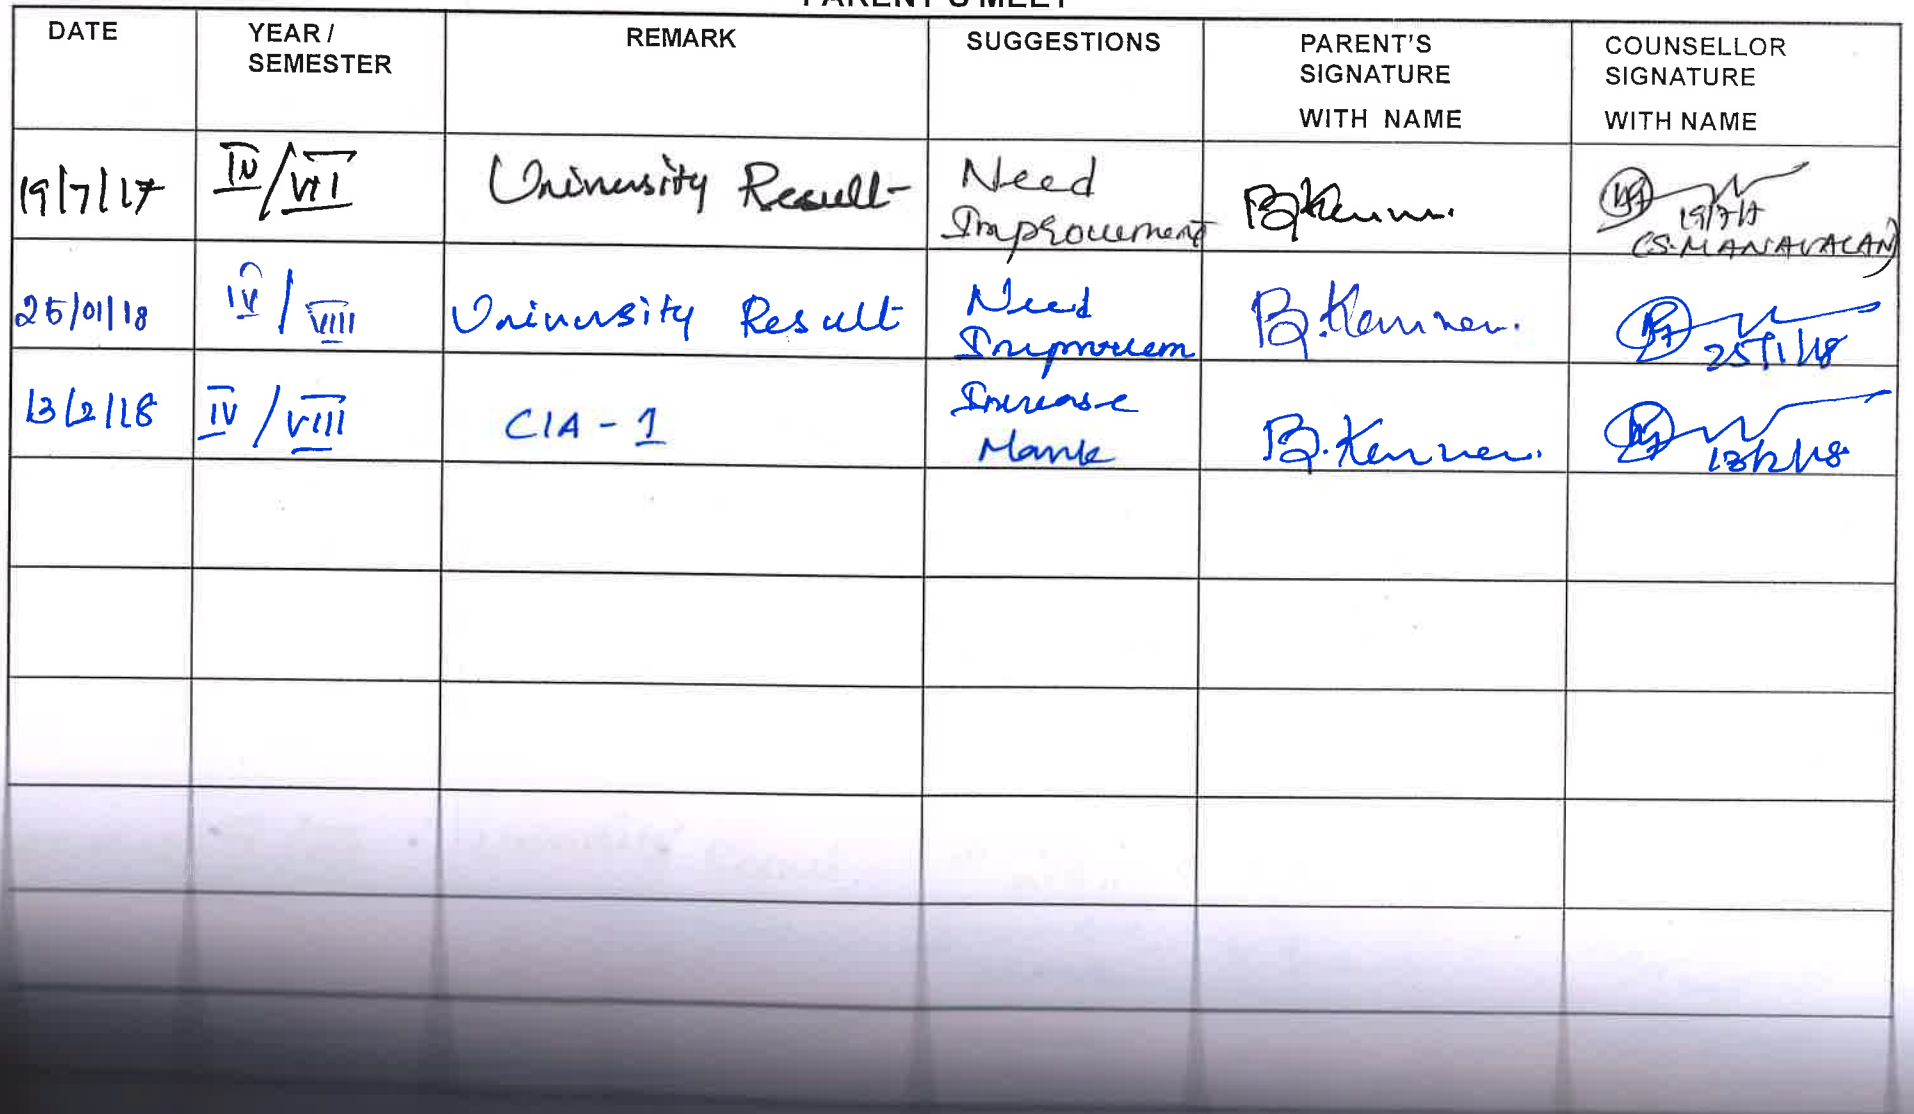 PARENT'S MEET
DATE
YEAR /
SEMESTER
REMARK
SUGGESTIONS
PARENT'S
SIGNATURE
WITH NAME
COUNSELLOR
SIGNATURE
WITH NAME
19/7/17
IV/VII
University Result
Need
Improvement
19/7/17
(S. MANAVALAN)
25/01/18
IV/VIII
University Result
Need
Improvem
25/1/18
13/2/18
IV/VIII
CIA - 1
Increase
Mark
13/2/18